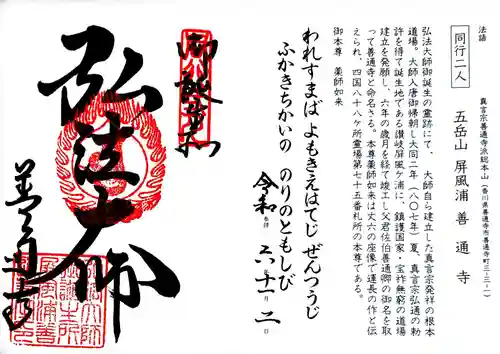 法話
真言宗善通寺派総本山（香川県善通寺市善通寺町三-三-一）
同行二人 五岳山 屏風浦 善通寺
弘法大師御誕生の霊跡にて、 大師自ら建立した真言宗発祥の根本
道場。大師入唐御帰朝し大同二年（八〇七年）夏、真言宗弘通の勅
許を得て誕生地である讃岐屏風ケ浦に、鎮護国家・宝祚無窮の道場
建立を発願し、六年の歳月を経て竣工し父君佐伯善通卿の御名を取
って善通寺と命名さる。本尊薬師如来は丈六の座像で運長の作と伝
えられ、四国八十八ケ所霊場第七十五番札所の本尊である。
御本尊 薬師如来
われすまば よもきえはてじ ぜんつうじ
ふかきちかいの のりのともしび
令和 六 十一 二日
御誕生所
弘法大師
善通寺